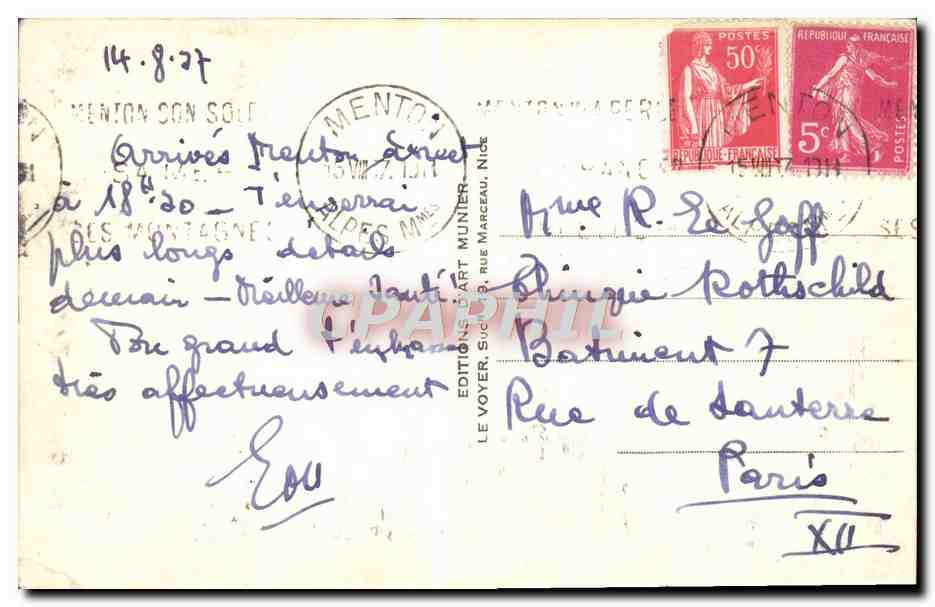 14.8.37
MENTON SON SOLE
SES MONTAGNES
MENTON
ALPES Mmes
Arrivés Menton
à 18H20 - T'enverrai
plus longs details
demain - Meilleure Santé!
Ton grand t'embrasse
très affectueusement
EDITIONS D'ART MUNIER
LE VOYER, Succr 9, RUE MARCEAU, NICE
CPAPHIL
POSTES
50c
REPUBLIQUE-FRANÇAISE
REPUBLIQUE FRANÇAISE
5c
POSTES
MENTON
Mme R. Le Goff
Clinique Rothschild
Batiment 7
Rue de Santerre
Paris
XII